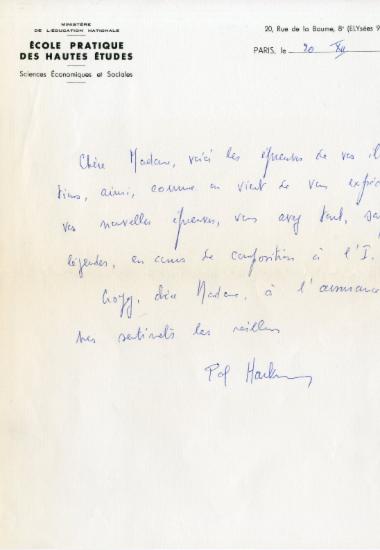 MINISTÈRE
DE L'ÉDUCATION NATIONALE
ÉCOLE PRATIQUE
DES HAUTES ÉTUDES
Sciences Économiques et Sociales
20, Rue de la Baume, 8e (ELYsées 9
PARIS, le 20 XII
Chère Madame, voici les épreuves de vos il
tions, ainsi, comme on vient de vous expéd
vos nouvelles épreuves, vous avez tout, sa
légendes, en cours de composition à l'I.
Croyez, chère Madame, à l'assurance
mes sentiments les meilleurs